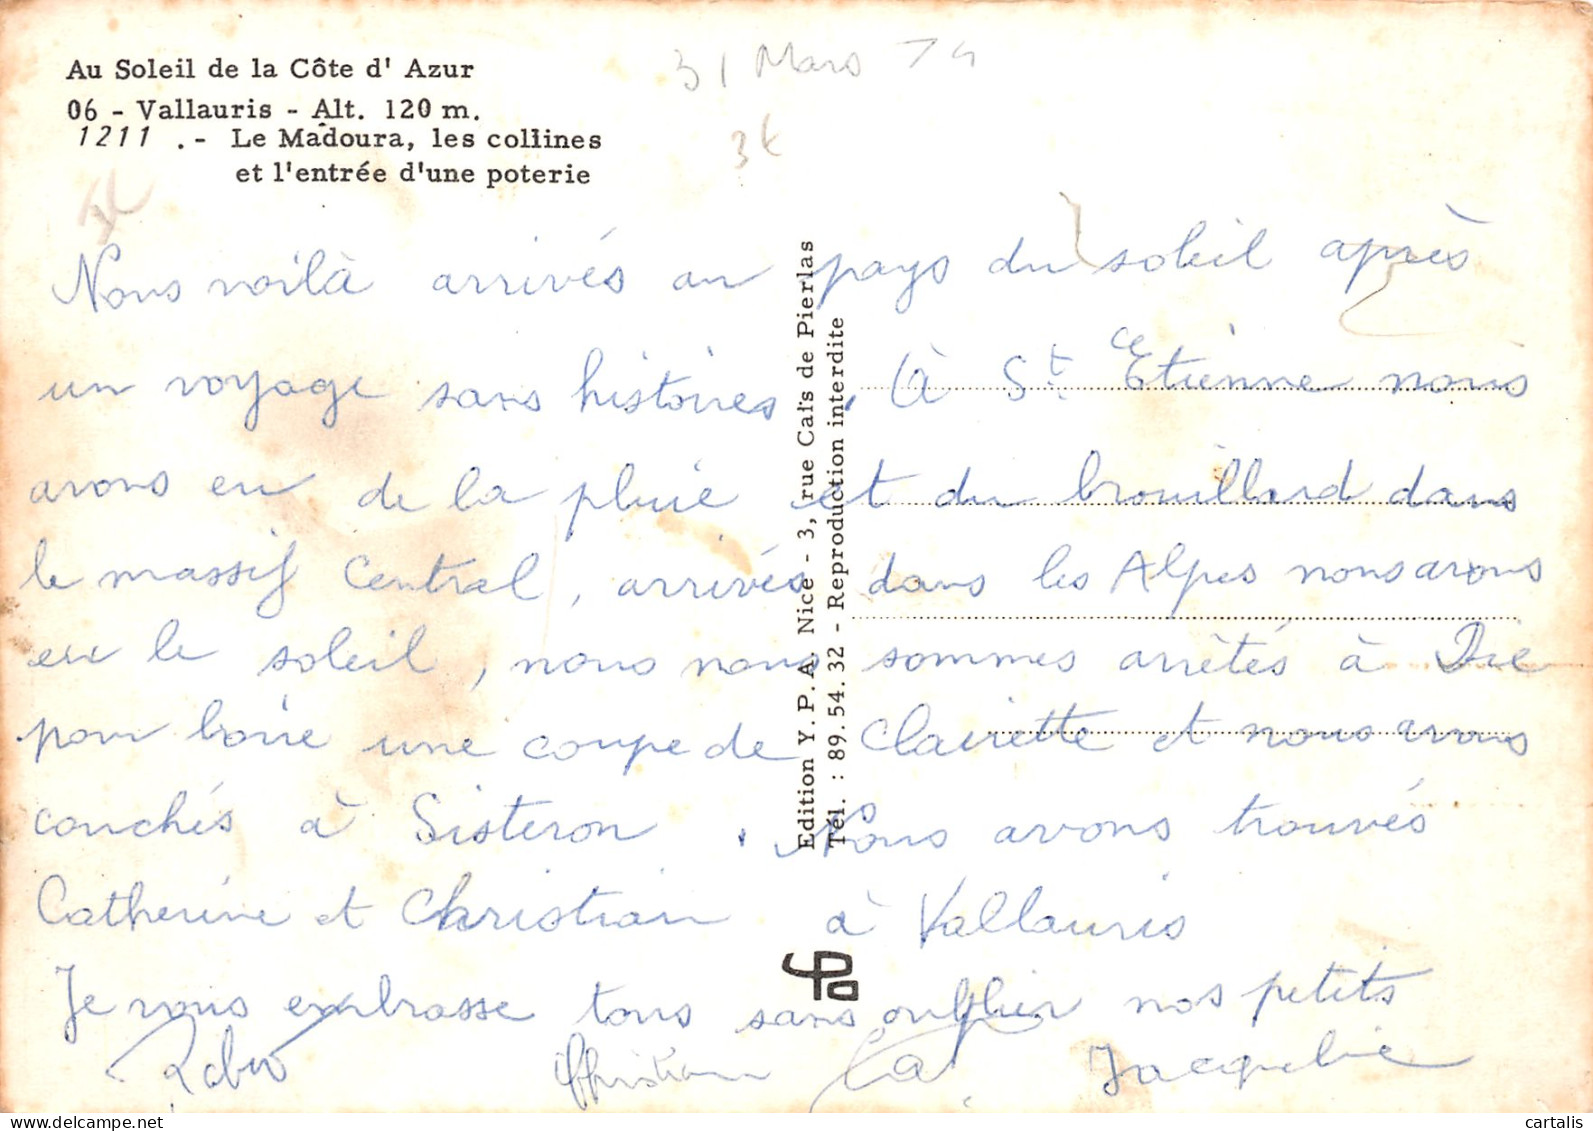 Au Soleil de la Côte d' Azur
06 - Vallauris - Alt. 120 m.
1211 .- Le Madoura, les collines
et l'entrée d'une poterie
31 Mars 74
Nous voilà arrivés au pays du soleil après
un voyage sans histoires, à St Etienne nous
avons eu de la pluie et du brouillard dans
le massif Central, arrivés dans les Alpes nous avons
eu le soleil, nous nous sommes arrêtés à Die
pour boire une coupe de Clairette et nous avons
couchés à Sisteron. Nous avons trouvés
Catherine et Christian à Vallauris
Je vous embrasse tous sans oublier nos petits
Christian Jacqueline
Edition Y.P.A. Nice - 3, rue Caïs de Pierlas
Tél. : 89.54.32 - Reproduction interdite
ypa
cartalis
cartalis.com